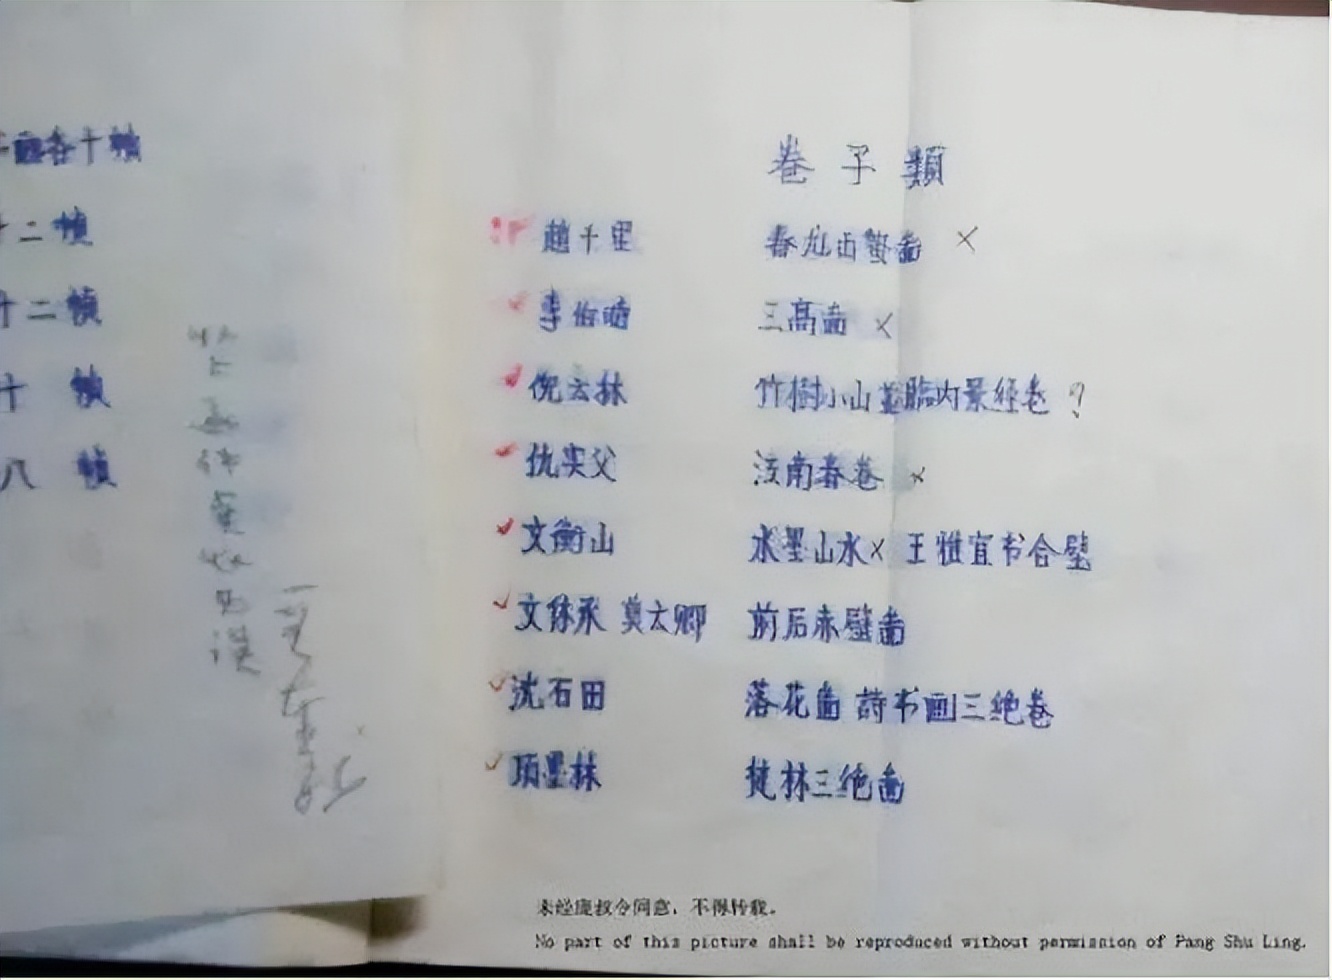 十幀
十二幀
十二幀
十 幀
八 幀
卷子類
趙千里 春龙西蟄啚 ×
李伯時 三高啚 ×
倪云林 竹樹小山 臨内景經卷 ?
仇实父 江南春卷 ×
文衡山 水墨山水 × 王雅宜书合璧
文休承 莫云卿 前后赤壁啚
沈石田 落花啚 詩书画三绝卷
项墨林 林三绝啚
未经庞叔令同意，不得转载。
No part of this picture shall be reproduced without permission of Pang Shu Ling.